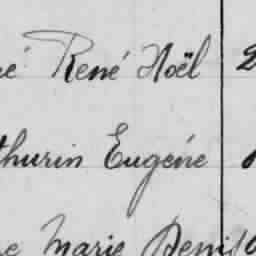 né René Noël 2
thurin Eugène
ne Marie Denis